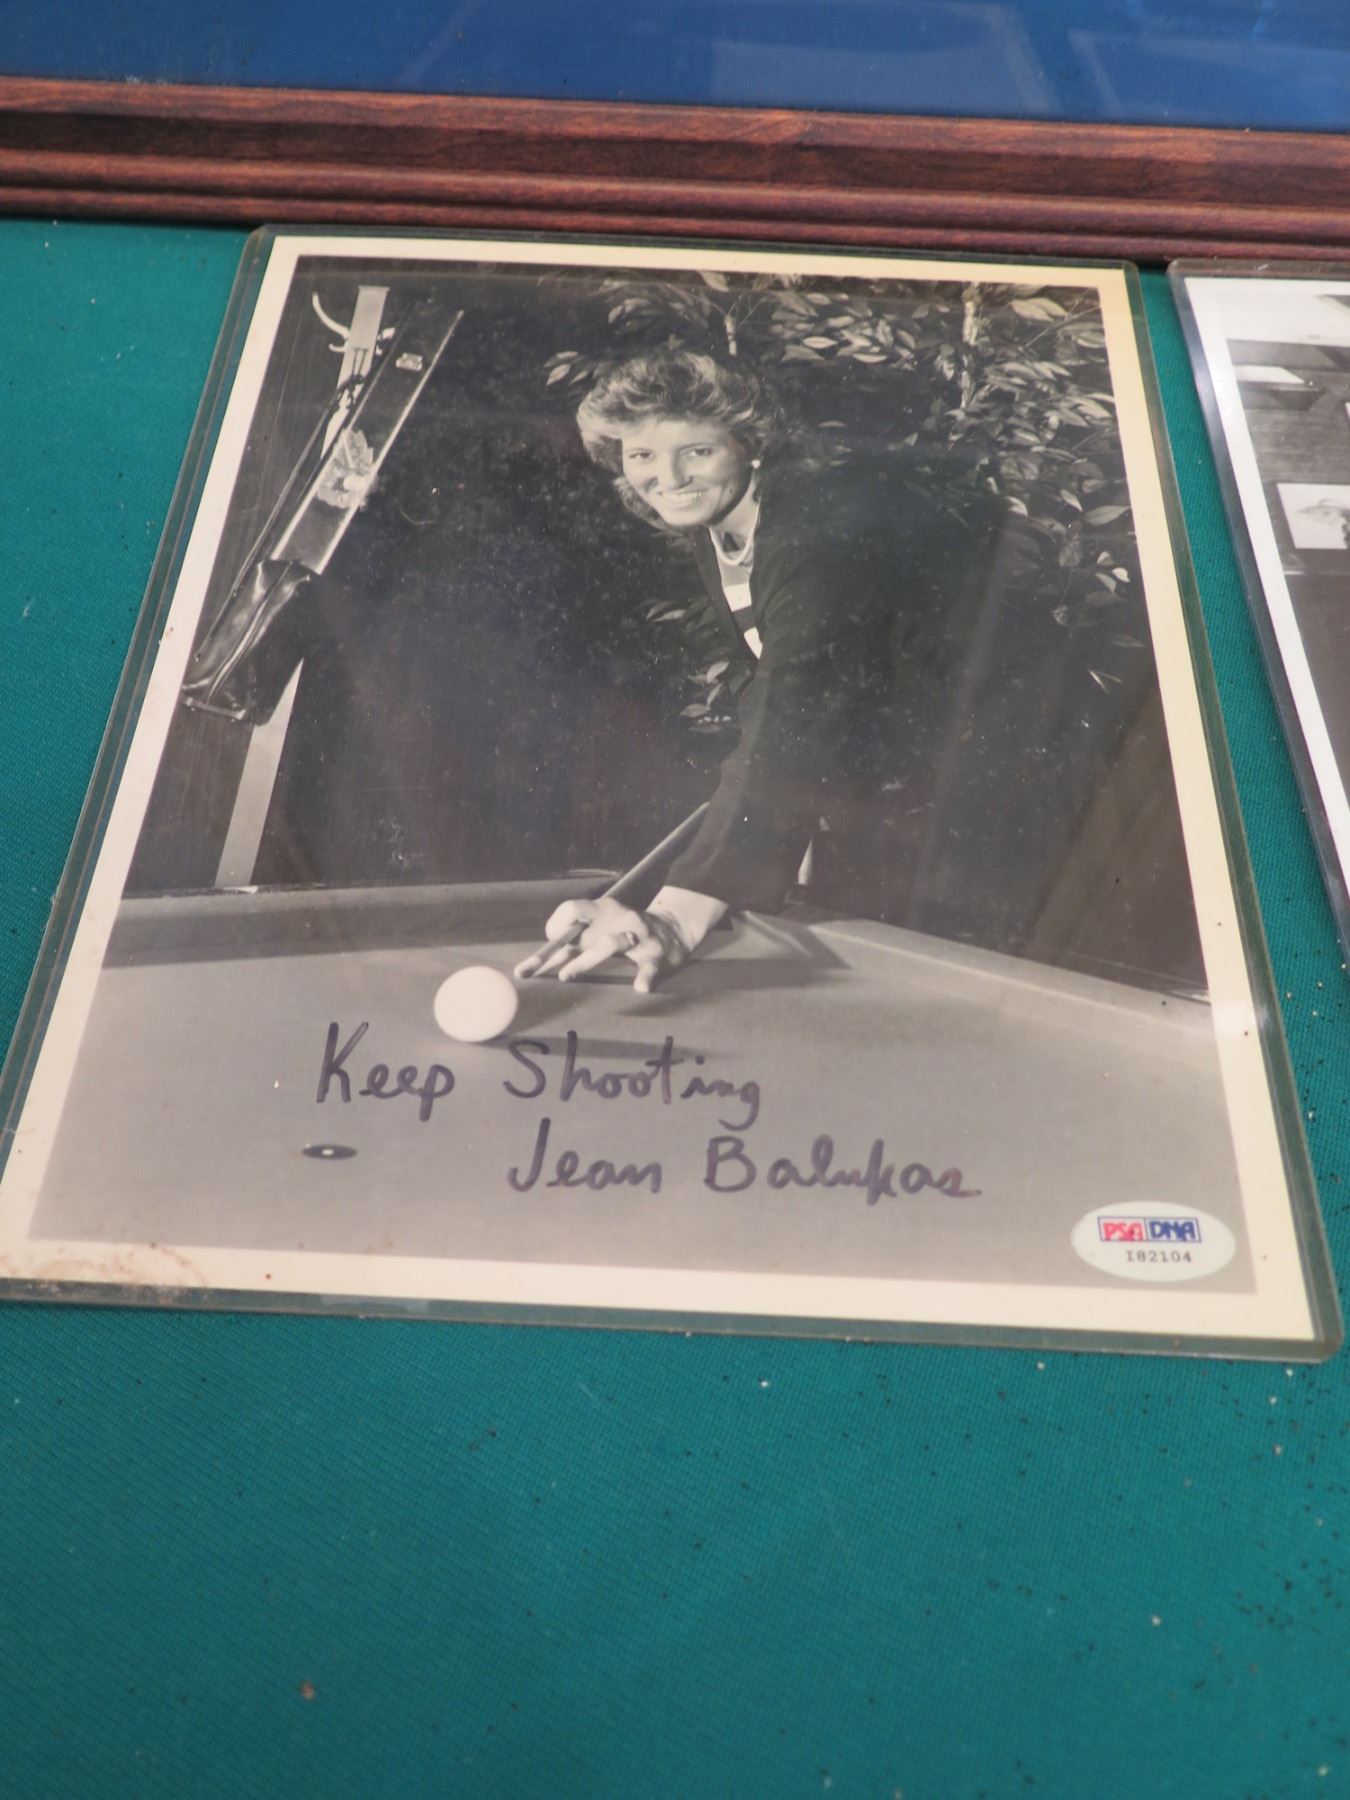 Keep Shooting
Jean Balukas
PSA DNA
I82104